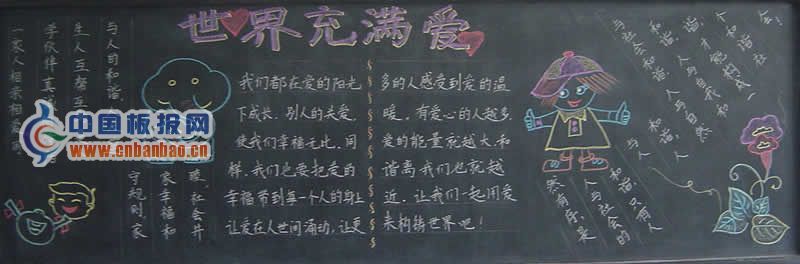 世界充满爱
与人的和谐,
生人互帮互
学伙伴真
一家人相亲相爱的
暖,社会井
家幸福和
守规则,家
我们都在爱的阳光
下成长,别人的关爱,
使我们幸福无比,同
样,我们也要把爱的
幸福带到每一个人的身上
让爱在人世间涌动,让更
多的人感受到爱的温
暖。有爱心的人越多,
爱的能量就越大,和
谐离我们也就越
近。让我们一起用爱
来构铸世界吧!
然有序,是
人与社会的
和谐,只有人
与人和谐,
人与自然
和谐,人与自我
与社会和谐,
才能构成一
个和谐社
会!
中国板报网
www.cnbanbao.cn